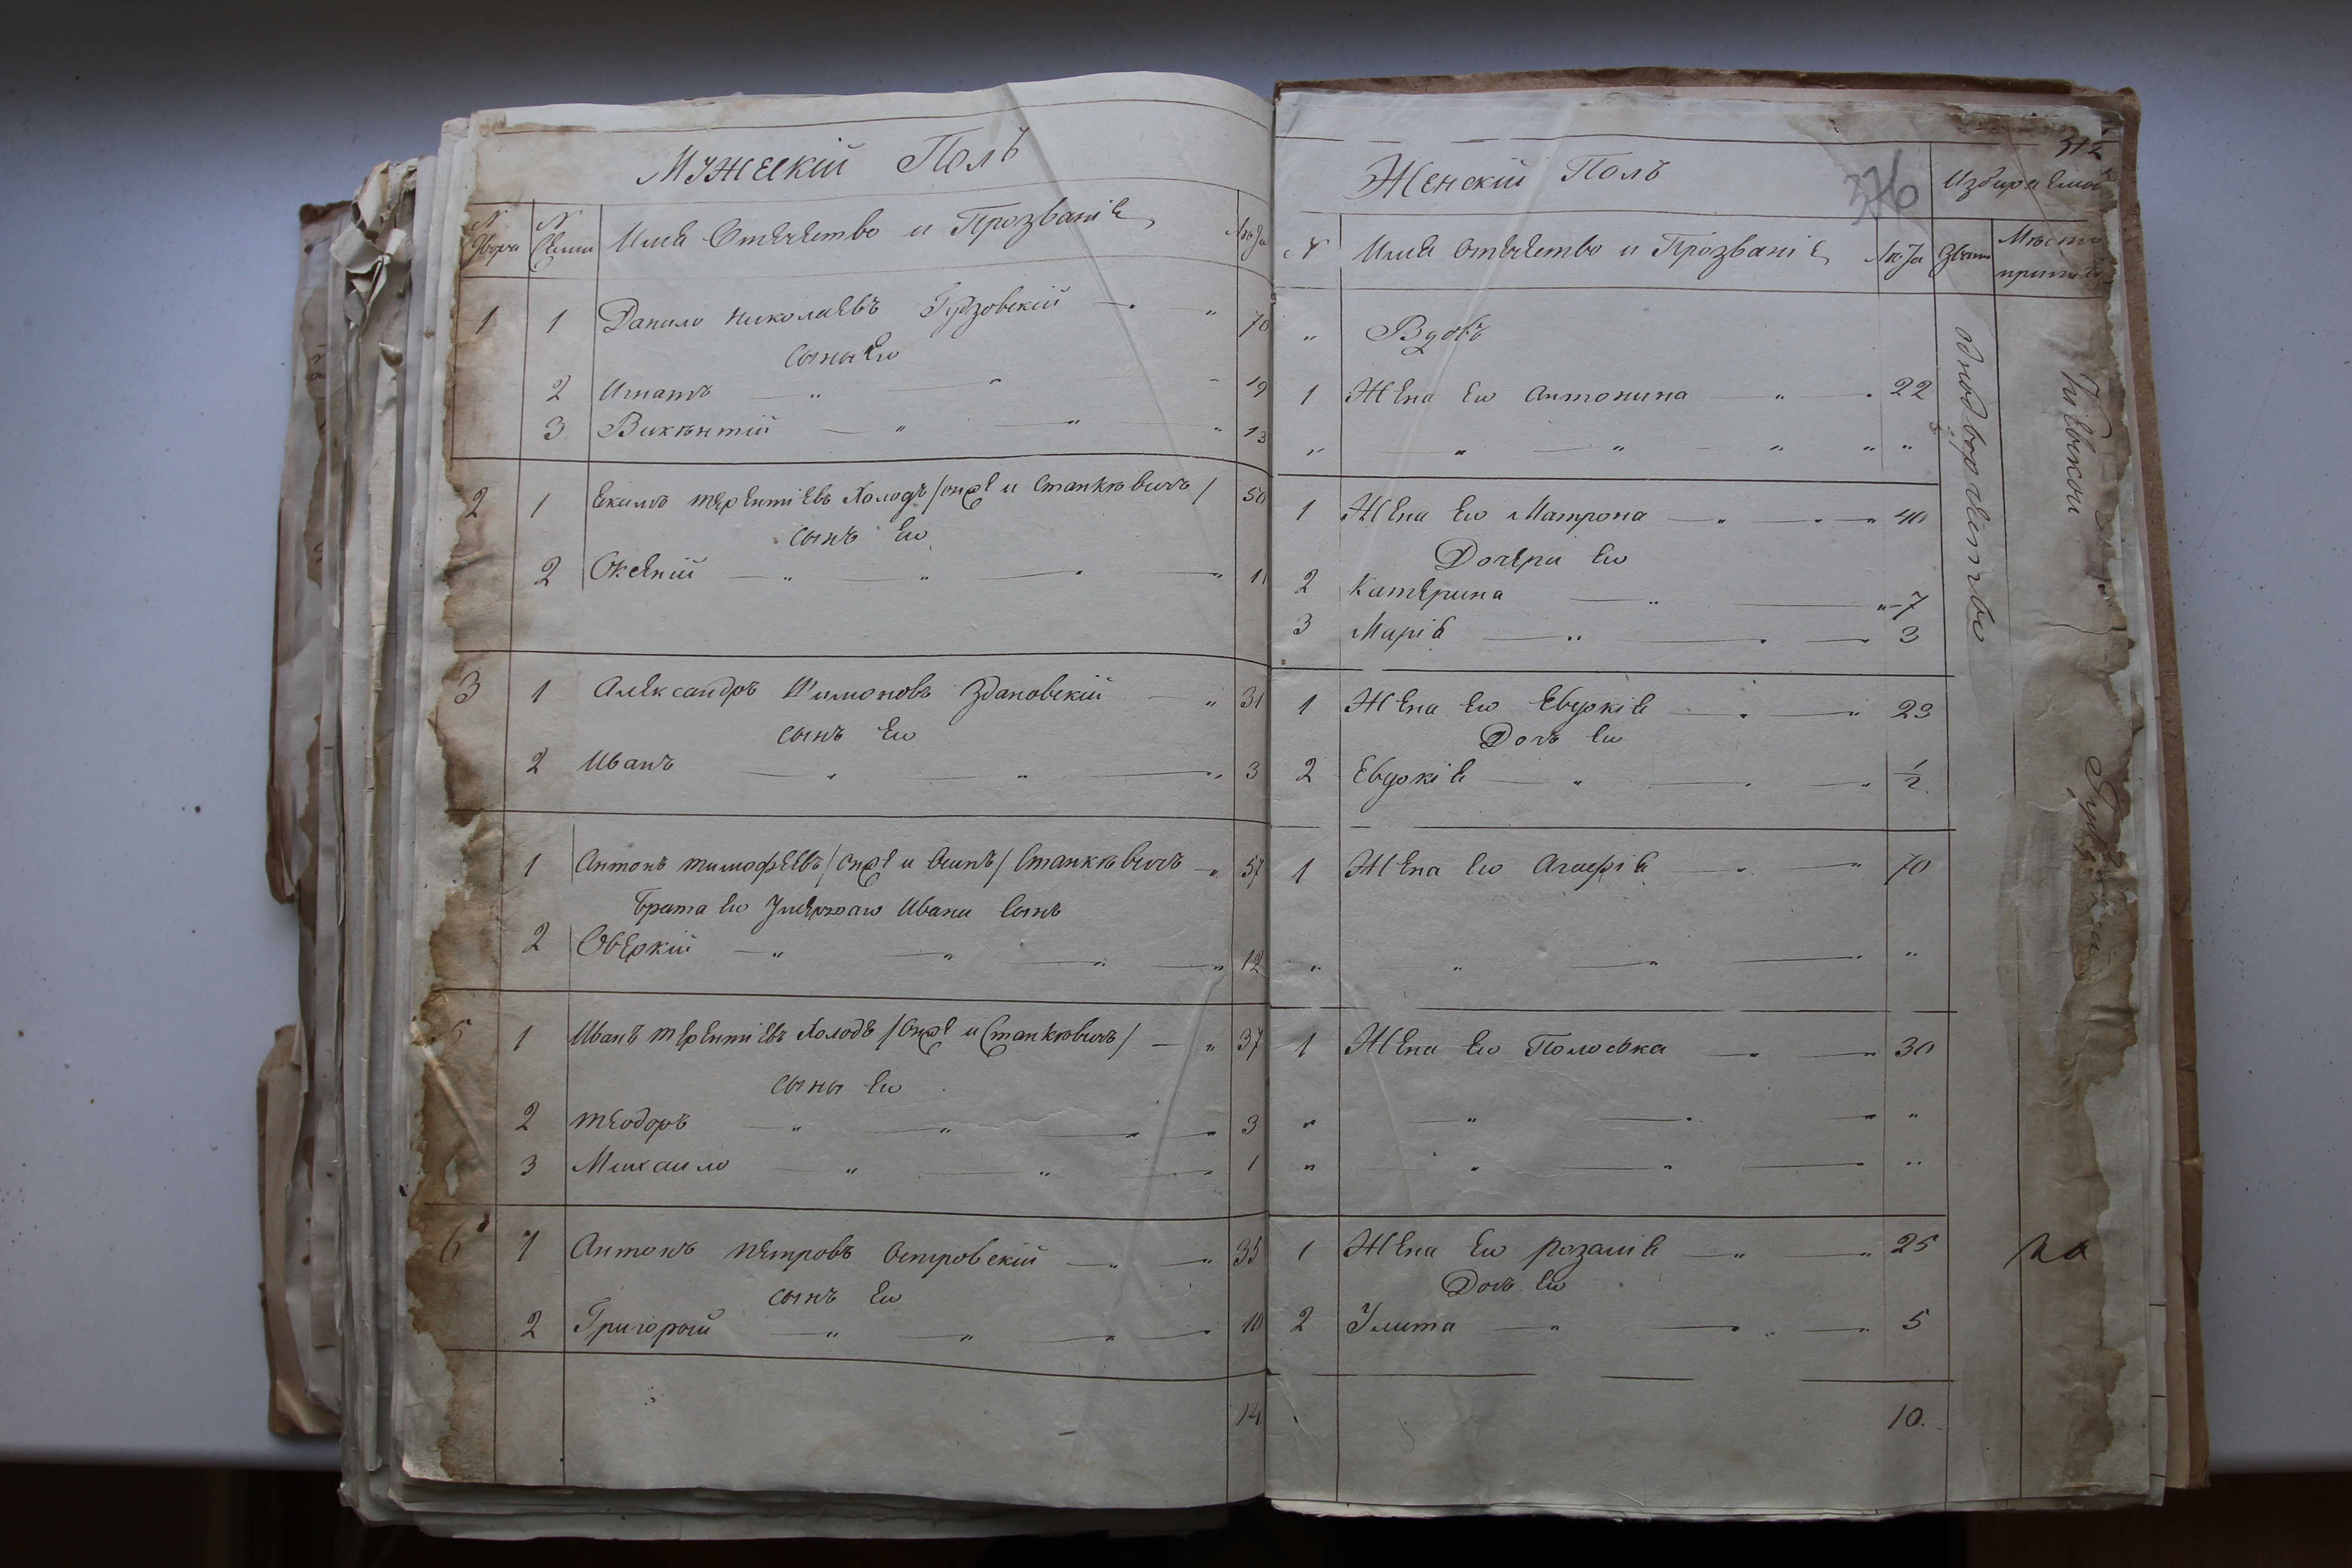 Мужескій Полъ
N Двора N Семьи Имя Отечество и Прозваніе Лѣта
1 1 Данило Николаевъ Гудзовскій — „ 70
сыны Его
2 Игнатъ — „ — „ „ 19
3 Викентій — „ — „ „ 13
2 1 Екимъ терентіевъ Холодъ /онже и Станкѣвичъ/ 50
сынъ Его
2 Оксентій — „ „ — „ — „ 11
3 1 Александръ Філімоновъ Здановскій — „ 31
сынъ Его
2 Иванъ — „ — „ — „ 3
1 Антонъ тимофѣевъ /онже и Осипъ/ Станкѣвичъ — „ 57
брата Его Умершаго Ивана Сынъ
2 Оверкій — „ — „ — „ — „ 12
5 1 Иванъ терентіевъ Холодъ /Онже и Станкѣвичъ/ — „ 37
сыны Его
2 теодоръ — „ — „ — „ — „ 3
3 Михаило — „ — „ — „ 1
6 1 Антонъ петровъ Островскій — „ — „ 35
сынъ Его
2 Григорій — „ — „ — „ — 10
14
312
376
Женскій Полъ
N Имя Отечество и Прозваніе Лѣта
„ Вдовъ
1 Жена Его Антонина „ — „ 22
„ — „ — „ — „ „ „
1 Жена Его Матрона — „ — „ — 40
Дочери Его
2 Катерина — „ — „ 7
3 Марія — „ — „ — 3
1 Жена Его Евдокія — „ — „ 23
Дочь Его
2 Евдокія — „ — „ — „ 1/2
1 Жена Его Агафія — „ — „ 70
„ „ — „ — „ „
1 Жена Его Полоська — „ — „ 30
„ — „ — „ — „ „
„ „ — „ — „ „
1 Жена Его розалія — „ — „ 25
Дочь Его
2 Улита — „ — „ — „ 5
10.
однодворчество
Кіевской
на